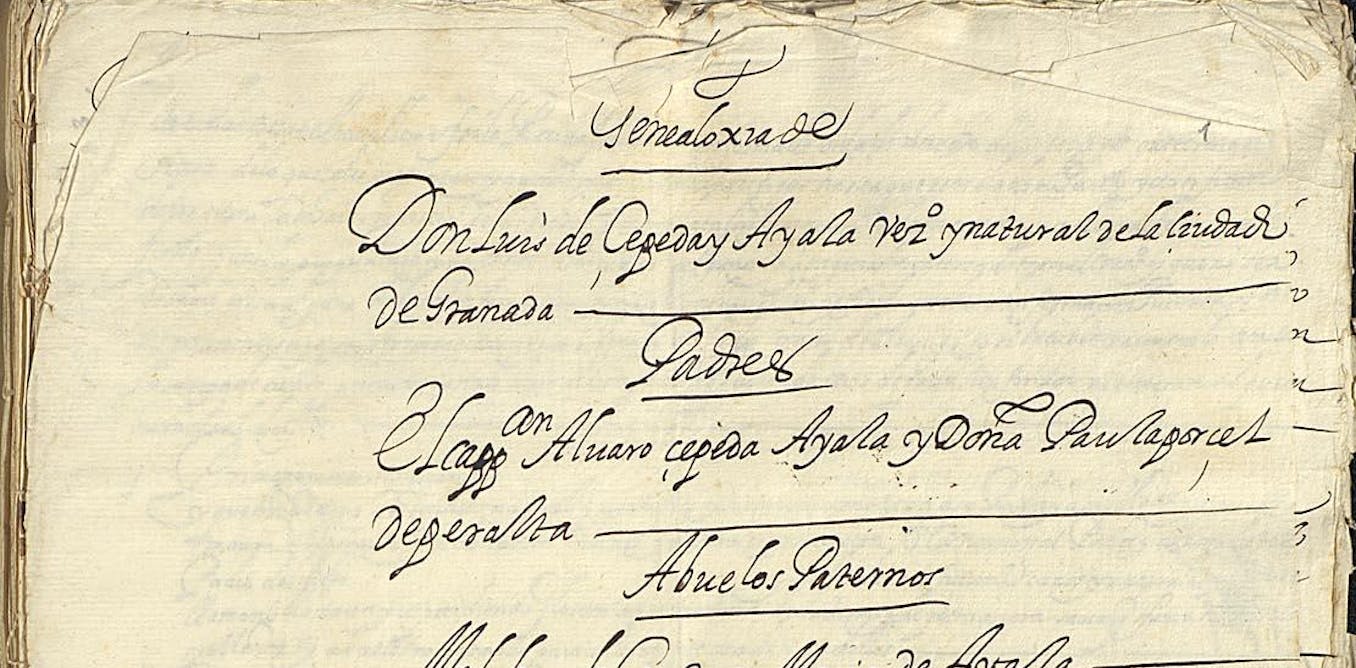 1
Genealoxia de
Don Luis de Cepeda y Ayala vezº y natural de la ciudad
de Granada
Padres
El cappan Alvaro cepeda Ayala y Doña Paula porcel
de peralta
Abuelos Paternos
de Ayala